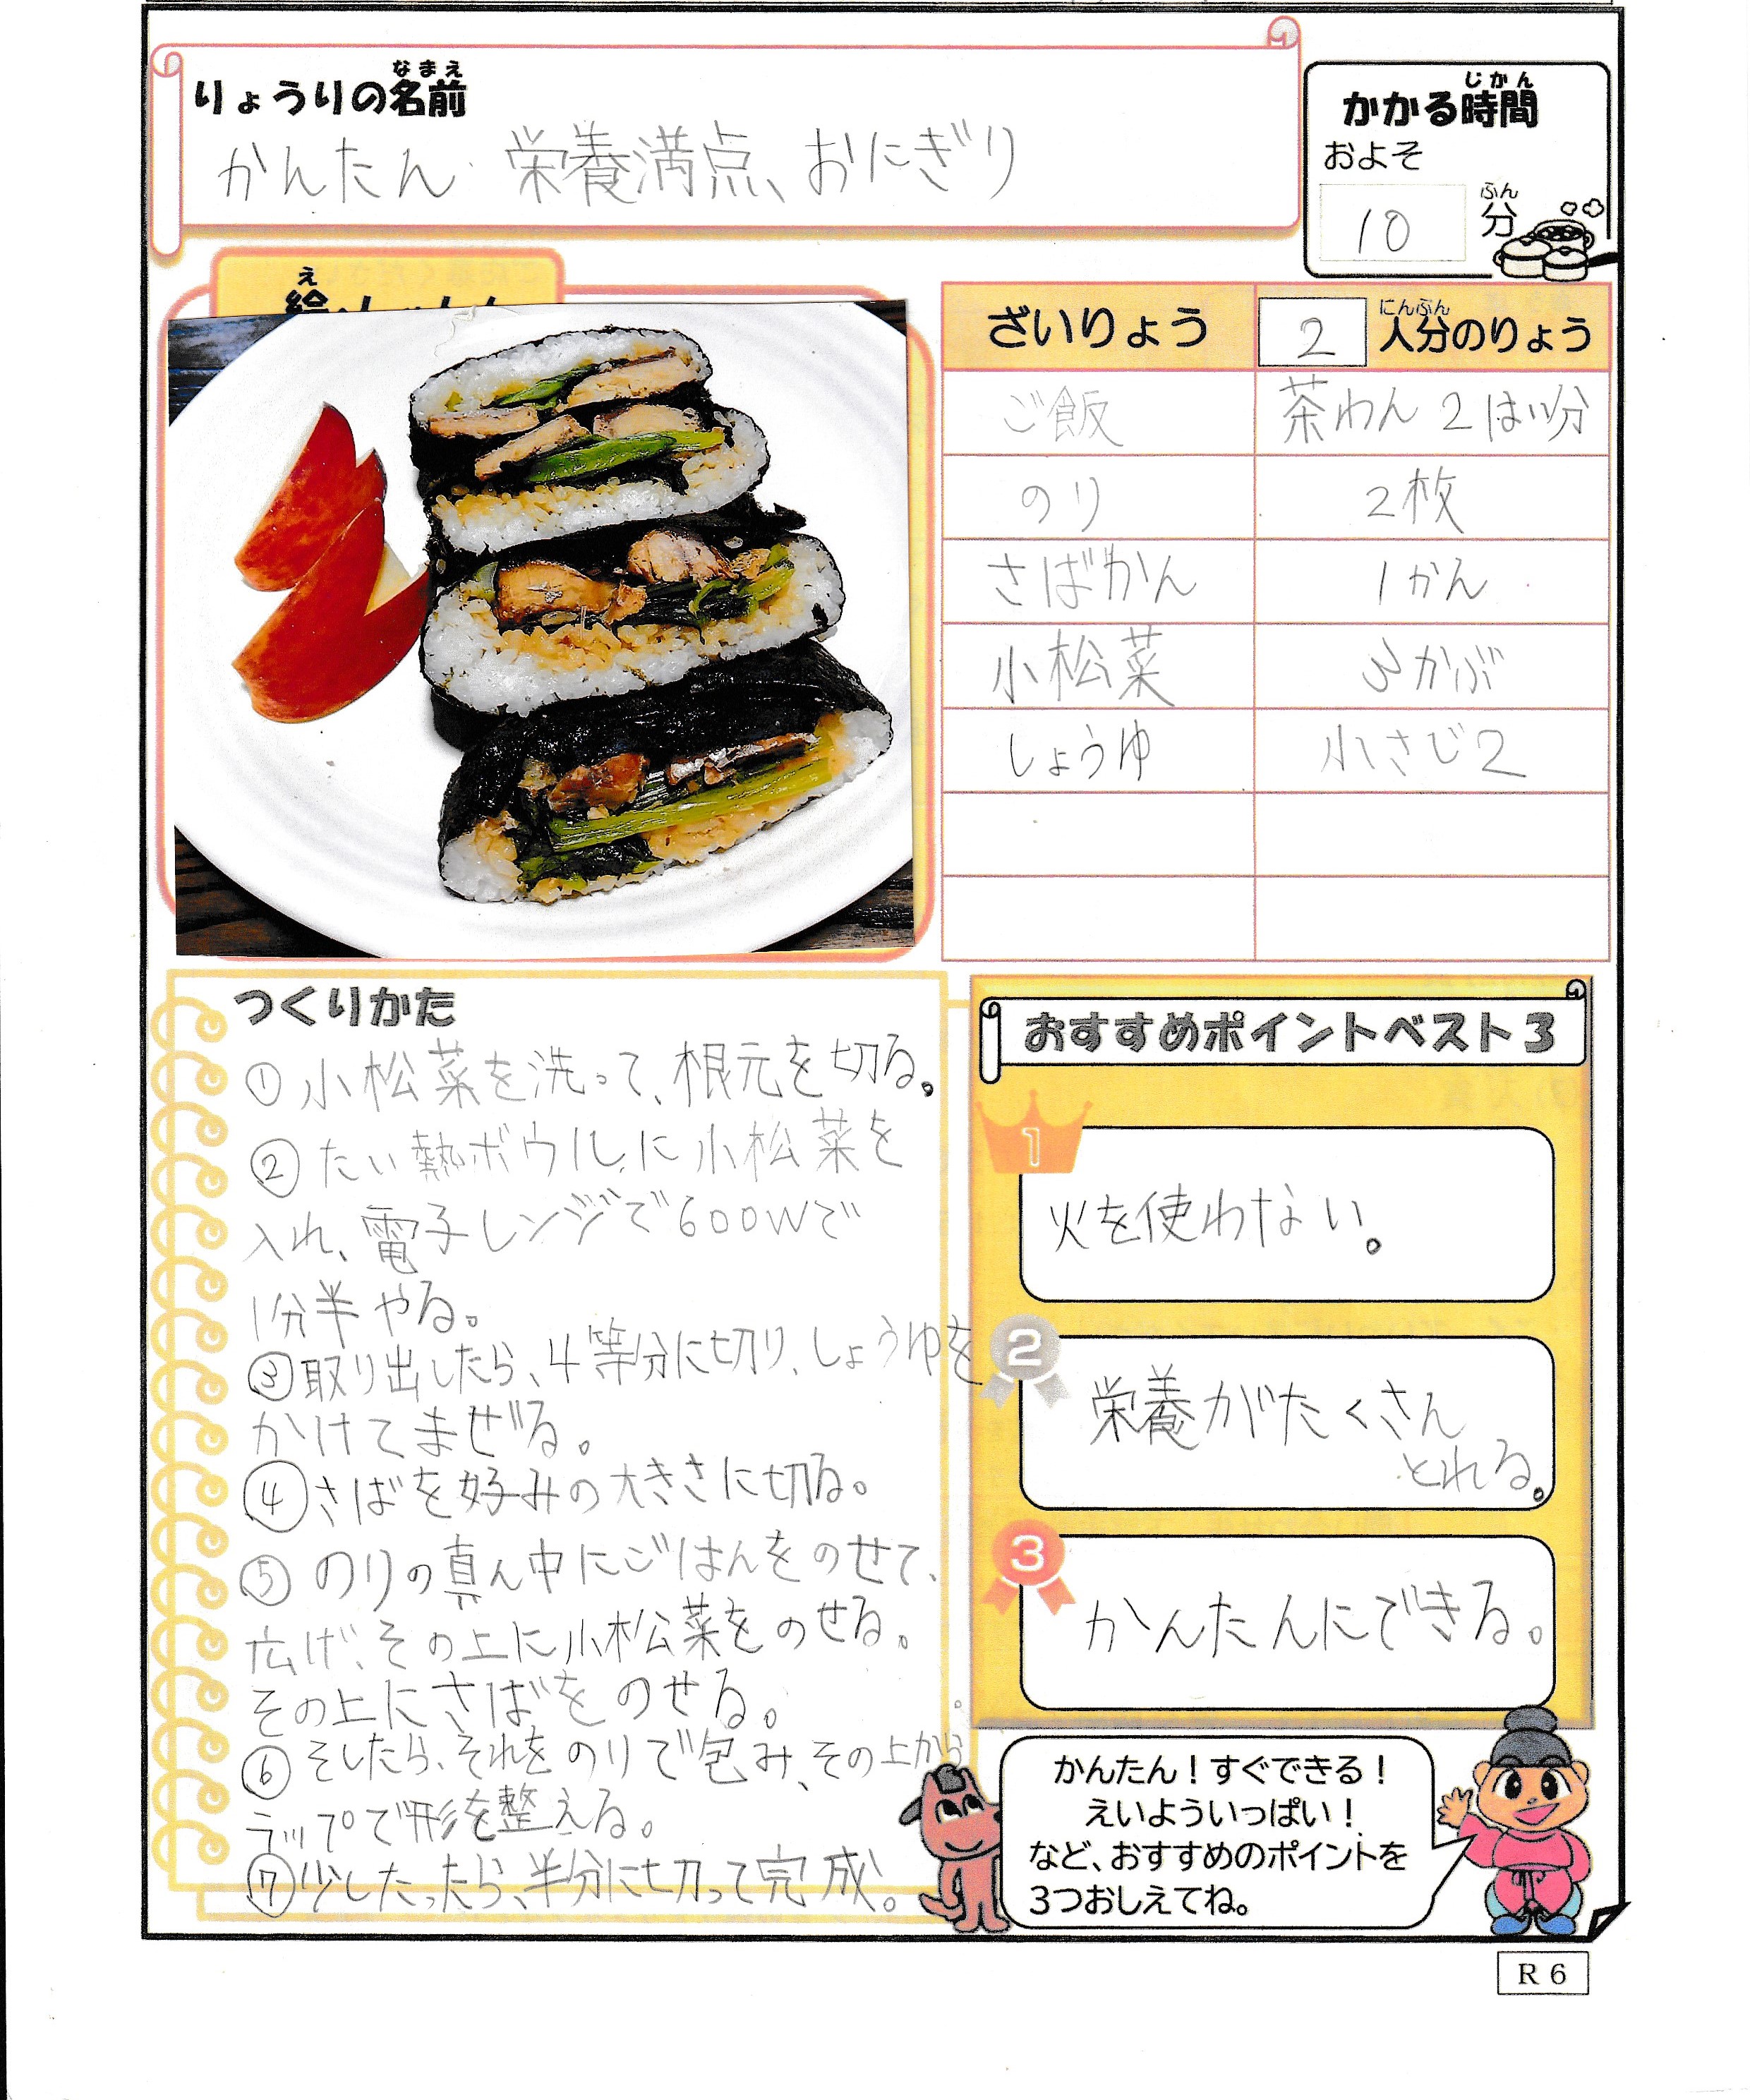 りょうりの名前
なまえ
かんたん 栄養満点、おにぎり
かかる時間
じかん
およそ
10 分
ふん
え
ざいりょう 2 人分のりょう
にんぶん
ご飯 茶わん2はい分
のり 2枚
さばかん 1かん
小松菜 3かぶ
しょうゆ 小さじ2
つくりかた
①小松菜を洗って、根元を切る。
②たい熱ボウルに小松菜を
入れ、電子レンジで600Wで
1分半やる。
③取り出したら、4等分に切り、しょうゆを
かけてまぜる。
④さばを好みの大きさに切る。
⑤のりの真ん中にごはんをのせて、
広げ、その上に小松菜をのせる。
その上にさばをのせる。
⑥そしたら、それをのりで包み、その上から
ラップで形を整える。
⑦少したったら、半分に切って完成。
おすすめポイントベスト3
1
火を使わない。
2
栄養がたくさん
とれる。
3
かんたんにできる。
かんたん！すぐできる！
えいよういっぱい！
など、おすすめのポイントを
3つおしえてね。
R6